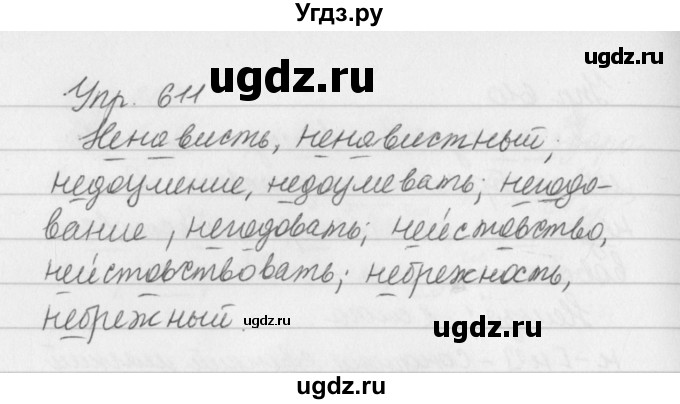 Угдз.ру
Упр. 611
ugdz.ru
Ненависть, ненавистный;
недоумение, недоумевать; негодо-
вание, негодовать; неистовство,
неистовствовать; небрежность,
небрежный.
ugdz.ru
ugdz.ru
ugdz.ru